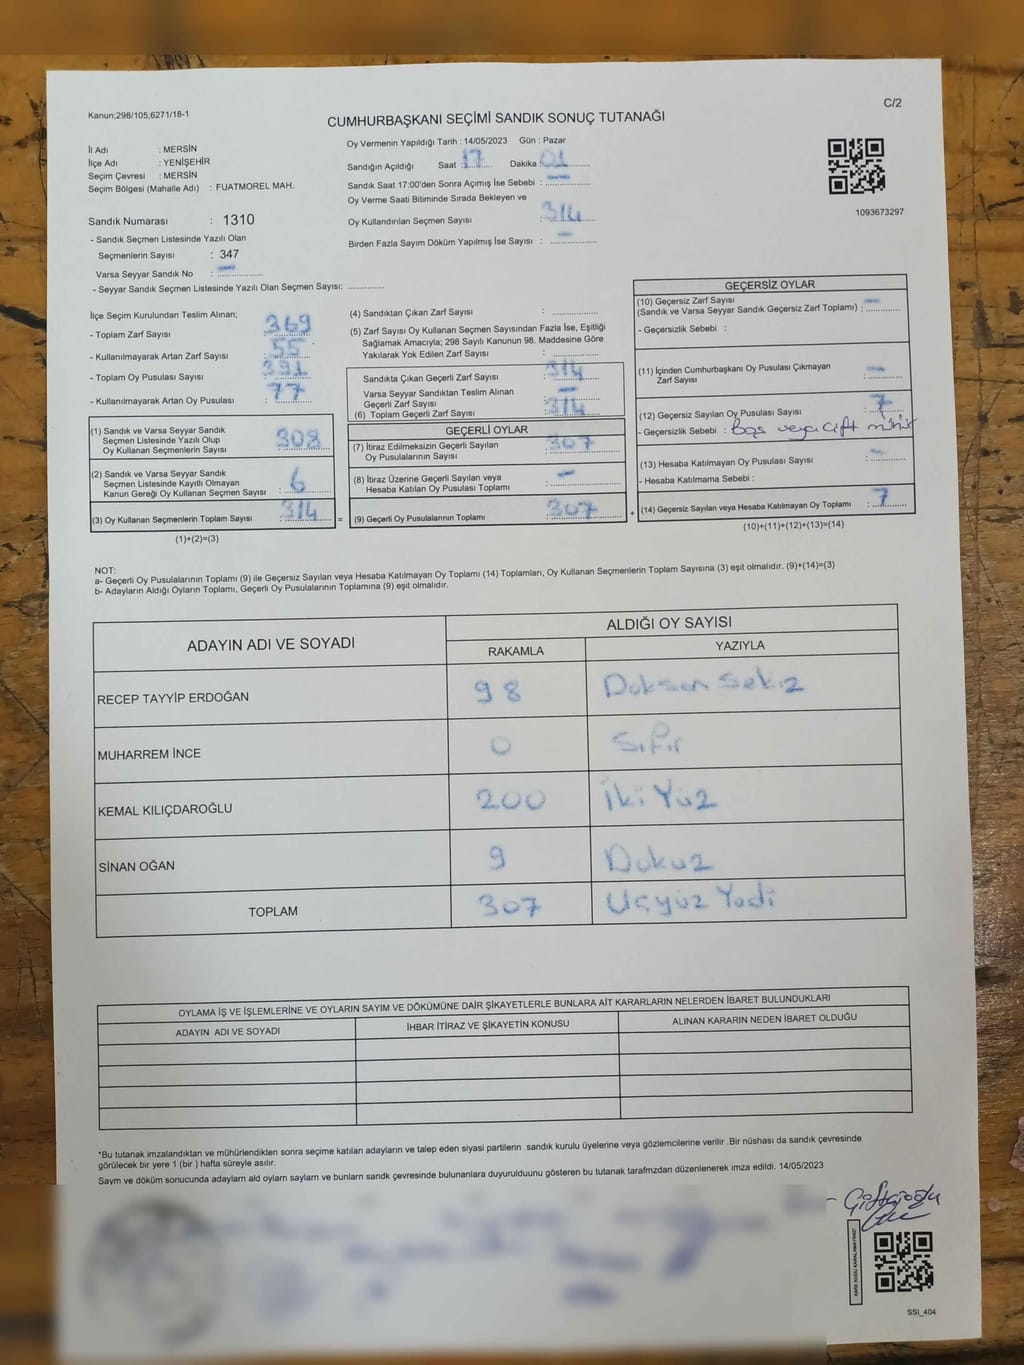 Kanun;298/105;6271/18-1
C/2
CUMHURBAŞKANI SEÇİMİ SANDIK SONUÇ TUTANAĞI
İl Adı : MERSİN
İlçe Adı : YENİŞEHİR
Seçim Çevresi : MERSİN
Seçim Bölgesi (Mahalle Adı) : FUATMOREL MAH.
Sandık Numarası : 1310
- Sandık Seçmen Listesinde Yazılı Olan
Seçmenlerin Sayısı : 347
Varsa Seyyar Sandık No : -
- Seyyar Sandık Seçmen Listesinde Yazılı Olan Seçmen Sayısı: ..............
Oy Vermenin Yapıldığı Tarih : 14/05/2023 Gün : Pazar
Sandığın Açıldığı Saat : 17 Dakika 01
Sandık Saat 17:00'den Sonra Açımış İse Sebebi : -
Oy Verme Saati Bitiminde Sırada Bekleyen ve
Oy Kullandırılan Seçmen Sayısı : 314
Birden Fazla Sayım Döküm Yapılmış İse Sayısı : -
1093673297
İlçe Seçim Kurulundan Teslim Alınan;
- Toplam Zarf Sayısı : 369
- Kullanılmayarak Artan Zarf Sayısı : 55
- Toplam Oy Pusulası Sayısı : 391
- Kullanılmayarak Artan Oy Pusulası : 77
(1) Sandık ve Varsa Seyyar Sandık
Seçmen Listesinde Yazılı Olup
Oy Kullanan Seçmenlerin Sayısı : 308
(2) Sandık ve Varsa Seyyar Sandık
Seçmen Listesinde Kayıtlı Olmayan
Kanun Gereği Oy Kullanan Seçmen Sayısı : 6
(3) Oy Kullanan Seçmenlerin Toplam Sayısı : 314
(1)+(2)=(3)
(4) Sandıktan Çıkan Zarf Sayısı : ..............
(5) Zarf Sayısı Oy Kullanan Seçmen Sayısından Fazla İse, Eşitliği
Sağlamak Amacıyla; 298 Sayılı Kanunun 98. Maddesine Göre
Yakılarak Yok Edilen Zarf Sayısı : ..............
Sandıkta Çıkan Geçerli Zarf Sayısı : 314
Varsa Seyyar Sandıktan Teslim Alınan
Geçerli Zarf Sayısı : -
(6) Toplam Geçerli Zarf Sayısı : 314
=
GEÇERLİ OYLAR
(7) İtiraz Edilmeksizin Geçerli Sayılan
Oy Pusulalarının Sayısı : 307
(8) İtiraz Üzerine Geçerli Sayılan veya
Hesaba Katılan Oy Pusulası Toplamı : -
(9) Geçerli Oy Pusulalarının Toplamı : 307
+
GEÇERSİZ OYLAR
(10) Geçersiz Zarf Sayısı
(Sandık ve Varsa Seyyar Sandık Geçersiz Zarf Toplamı) : -
- Geçersizlik Sebebi :
(11) İçinden Cumhurbaşkanı Oy Pusulası Çıkmayan
Zarf Sayısı : -
(12) Geçersiz Sayılan Oy Pusulası Sayısı : 7
- Geçersizlik Sebebi : Boş veya çift mühür
(13) Hesaba Katılmayan Oy Pusulası Sayısı : -
- Hesaba Katılmama Sebebi :
(14) Geçersiz Sayılan veya Hesaba Katılmayan Oy Toplamı : 7
(10)+(11)+(12)+(13)=(14)
NOT:
a- Geçerli Oy Pusulalarının Toplamı (9) ile Geçersiz Sayılan veya Hesaba Katılmayan Oy Toplamı (14) Toplamları, Oy Kullanan Seçmenlerin Toplam Sayısına (3) eşit olmalıdır. (9)+(14)=(3)
b- Adayların Aldığı Oyların Toplamı, Geçerli Oy Pusulalarının Toplamına (9) eşit olmalıdır.
ADAYIN ADI VE SOYADI
ALDIĞI OY SAYISI
RAKAMLA YAZIYLA
RECEP TAYYİP ERDOĞAN 98 Doksan Sekiz
MUHARREM İNCE 0 Sıfır
KEMAL KILIÇDAROĞLU 200 İki Yüz
SİNAN OĞAN 9 Dokuz
TOPLAM 307 Üçyüz Yedi
OYLAMA İŞ VE İŞLEMLERİNE VE OYLARIN SAYIM VE DÖKÜMÜNE DAİR ŞİKAYETLERLE BUNLARA AİT KARARLARIN NELERDEN İBARET BULUNDUKLARI
ADAYIN ADI VE SOYADI İHBAR İTİRAZ VE ŞİKAYETİN KONUSU ALINAN KARARIN NEDEN İBARET OLDUĞU
*Bu tutanak imzalandıktan ve mühürlendikten sonra seçime katılan adayların ve talep eden siyasi partilerin sandık kurulu üyelerine veya gözlemcilerine verilir .Bir nüshası da sandık çevresinde
görülecek bir yere 1 (bir ) hafta süreyle asılır.
Sayım ve döküm sonucunda adayların ald oyların sayıların ve bunların sandk çevresinde bulunanlara duyurulduunu gösteren bu tutanak tarafmzdan düzenlenerek imza edildi. 14/05/2023
Çiftçioğlu
SSI_404